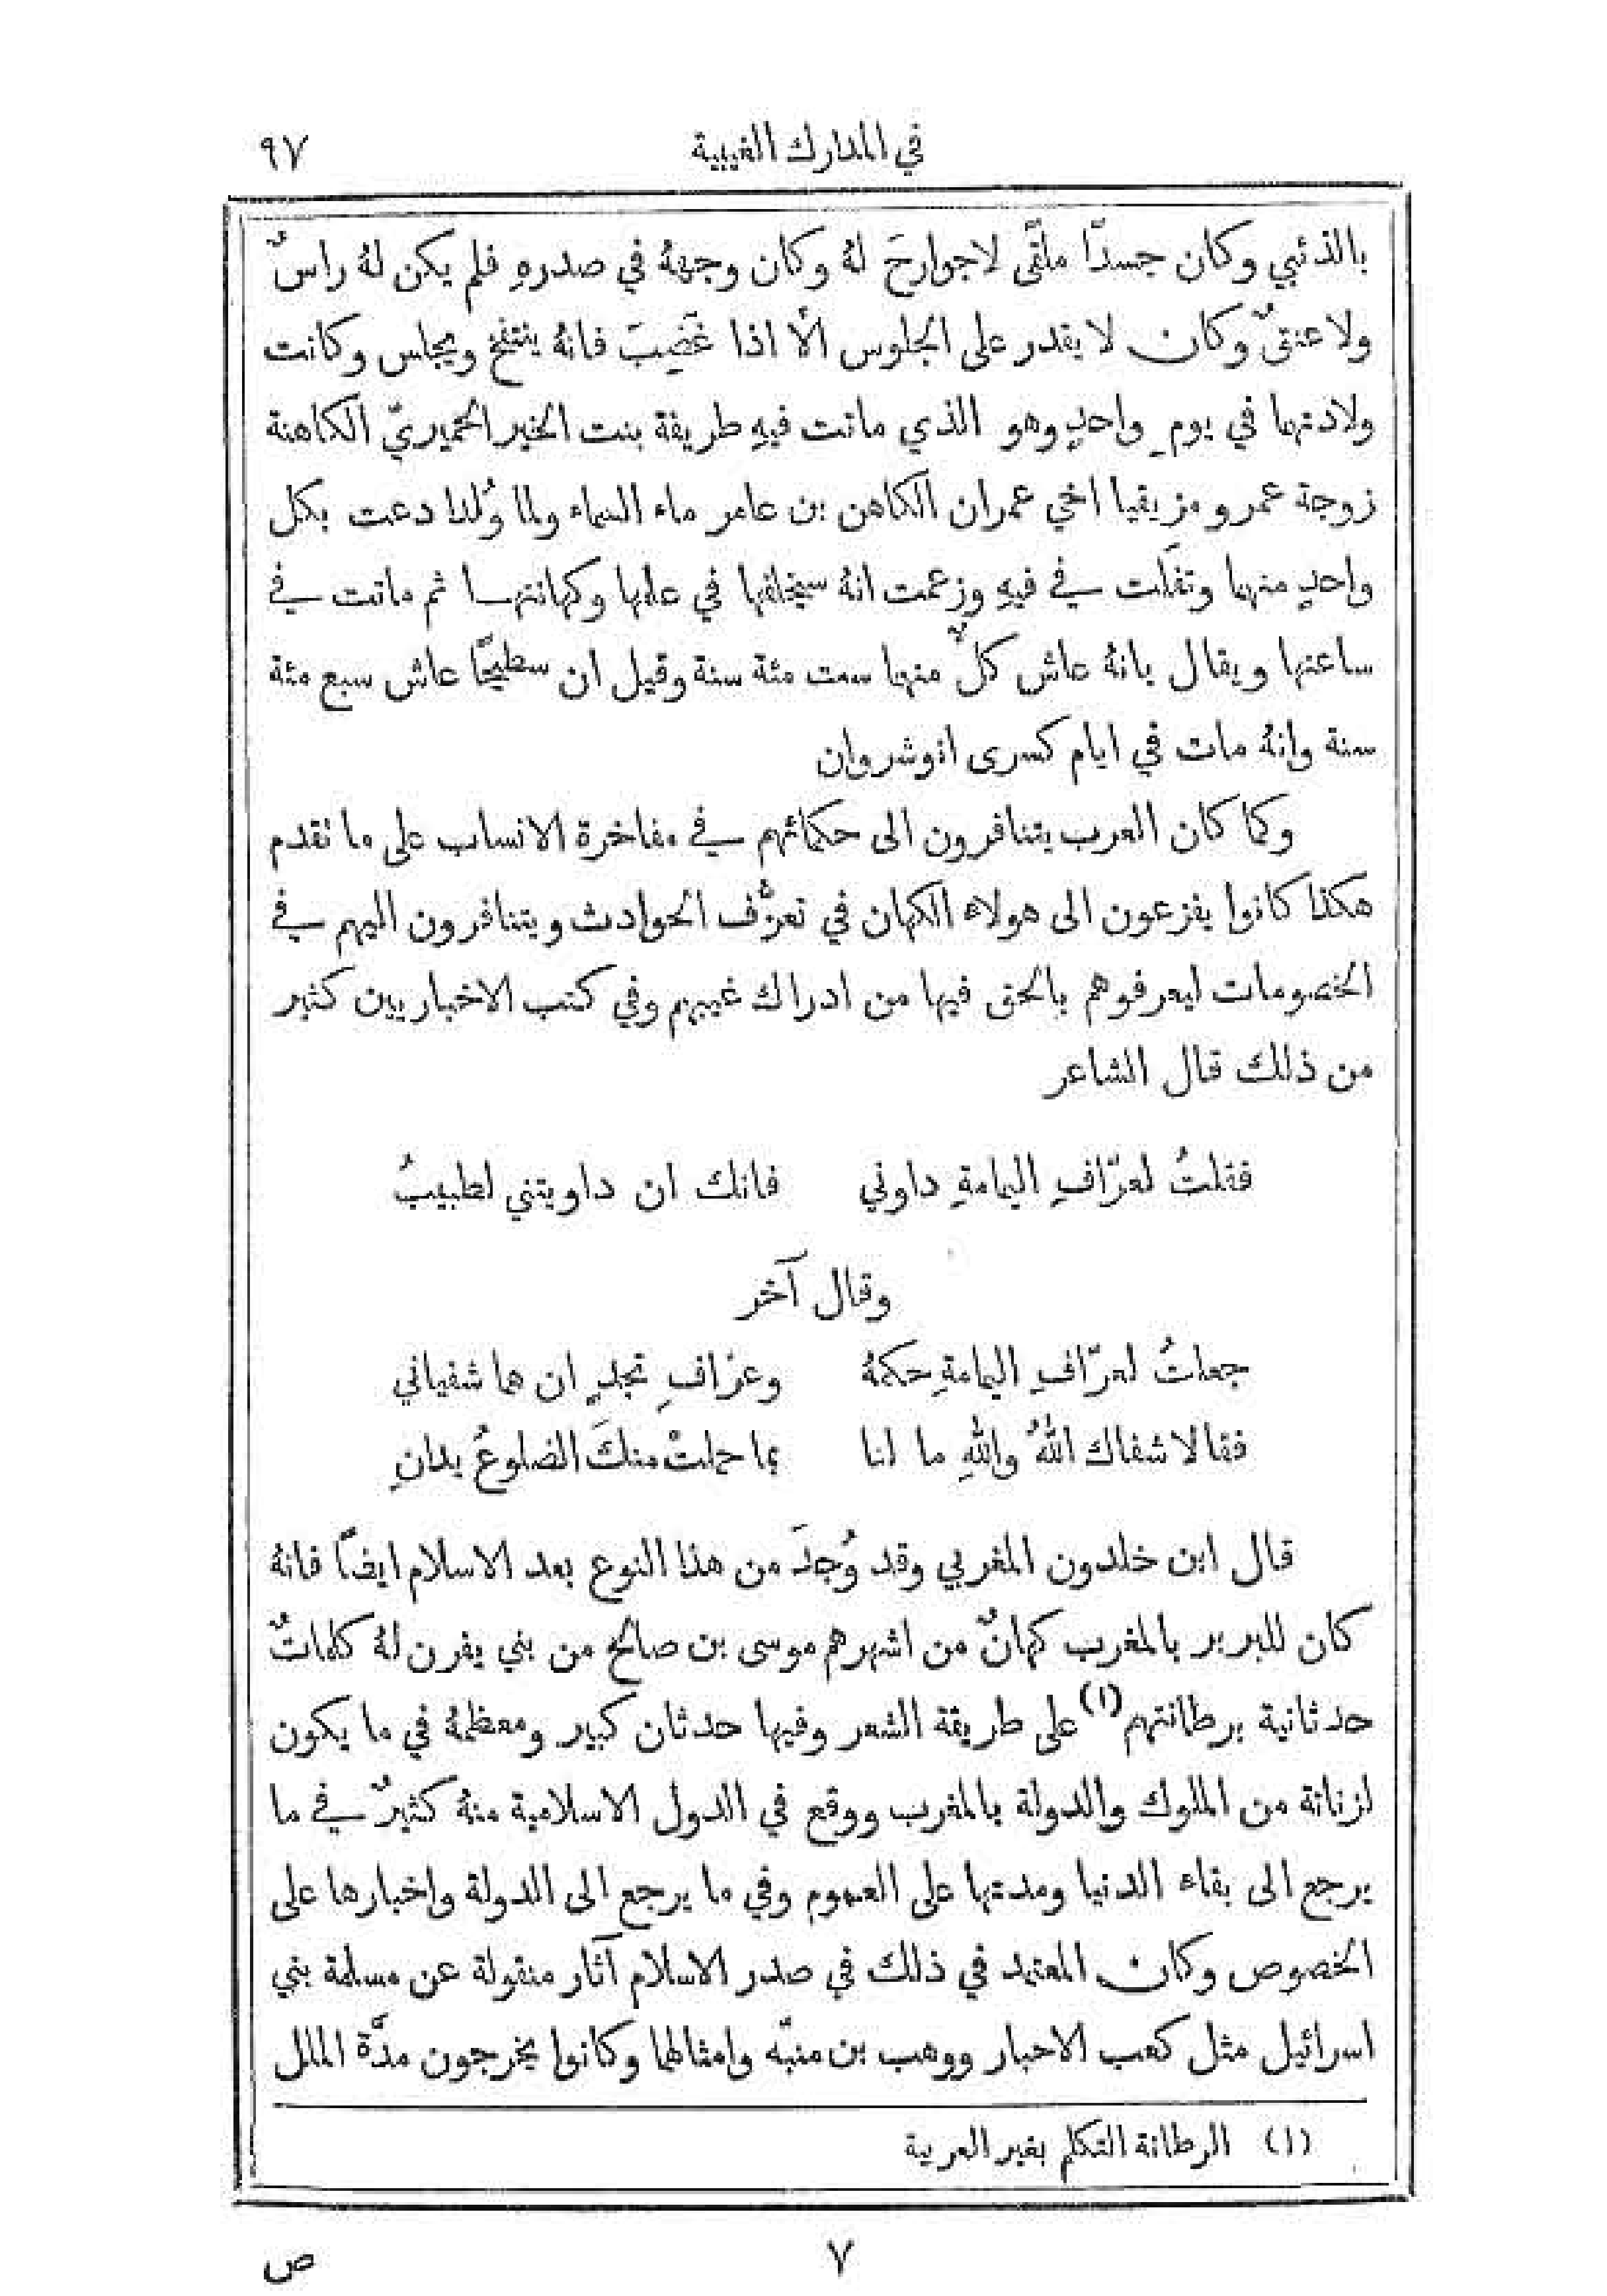 في المدارك الغيبية ٩٧
بالذئبي وكان جسدًا ملقًى لا جوارحَ لهُ وكان وجههُ في صدرهِ فلم يكن لهُ راسٌ
ولا عنقٌ وكان لا يقدر على الجلوس الَّا اذا غَضِبَ فانهُ ينتفخ ويجلس وكانت
ولادتهما في يومٍ واحدٍ وهو الذي ماتت فيهِ طريفة بنت الخير الحميريّ الكاهنة
زوجة عمرو مزيقيا اخي عمران الكاهن بن عامر ماء السماء ولما وُلدا دعت بكل
واحدٍ منهما وتفلَت في فيهِ وزعمت انهُ سيخلفها في علمها وكهانتها ثم ماتت في
ساعتها ويقال بانهُ عاش كلٌّ منهما ست مئة سنة وقيل ان سطيحًا عاش سبع مئة
سنة وانهُ مات في ايام كسرى انوشروان
وكما كان العرب يتنافرون الى حكمائهم في مفاخرة الانساب على ما تقدم
هكذا كانوا يفزعون الى هولاء الكهان في تعرُّف الحوادث ويتنافرون اليهم في
الخصومات ليعرفوهم بالحق فيها من ادراك غيبهم وفي كتب الاخباريين كثير
من ذلك قال الشاعر
فقلتُ لعرّافِ اليمامةِ داوني فانك ان داويتني لطبيبُ
وقال آخر
جعلتُ لعرّافِ اليمامةِ حكمهُ وعرّافِ نجدٍ ان هما شفياني
فقالا شفاك اللهُ واللهِ ما لنا بما حملتْ منكَ الضلوعُ يدانِ
قال ابن خلدون المغربي وقد وُجدَ من هذا النوع بعد الاسلام ايضًا فانهُ
كان للبربر بالمغرب كهانٌ من اشهرهم موسى بن صالح من بني يفرن لهُ كلماتٌ
حدثانية برطانتهم (١) على طريقة الشعر وفيها حدثان كبير ومعظمهُ في ما يكون
لزناتة من الملوك والدولة بالمغرب ووقع في الدول الاسلامية منهُ كثيرٌ في ما
يرجع الى بقاء الدنيا ومدتها على العموم وفي ما يرجع الى الدولة واخبارها على
الخصوص وكان المعتمد في ذلك في صدر الاسلام آثار منقولة عن مسلمة بني
اسرائيل مثل كعب الاحبار ووهب بن منبّه وامثالهما وكانوا يخرجون مدَّة الملل
(١) الرطانة التكلم بغير العربية
٧ ص